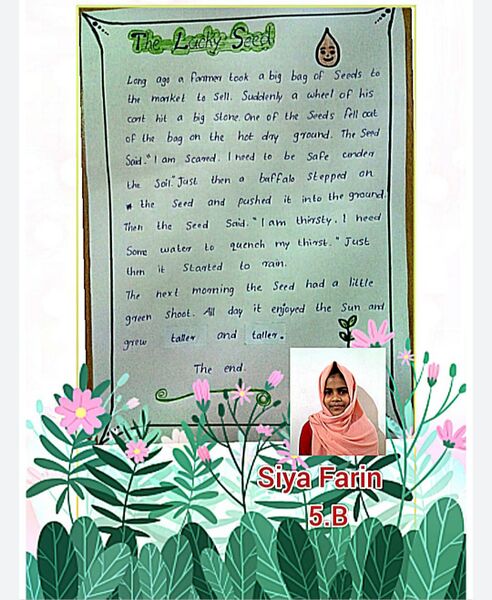 The Lucky Seed
Long ago a farmer took a big bag of Seeds to
the market to Sell. Suddenly a wheel of his
cart hit a big stone. One of the Seeds fell out
of the bag on the hot dry ground. The Seed
Said. "I am Scared. I need to be Safe under
the Soil." Just then a buffalo stepped on
the Seed and pushed it into the ground.
Then the Seed Said. "I am thirsty. I need
Some water to quench my thirst." Just
then it Started to rain.
The next morning the Seed had a little
green Shoot. All day it enjoyed the Sun and
grew taller and taller.
The end.
Siya Farin
5.B